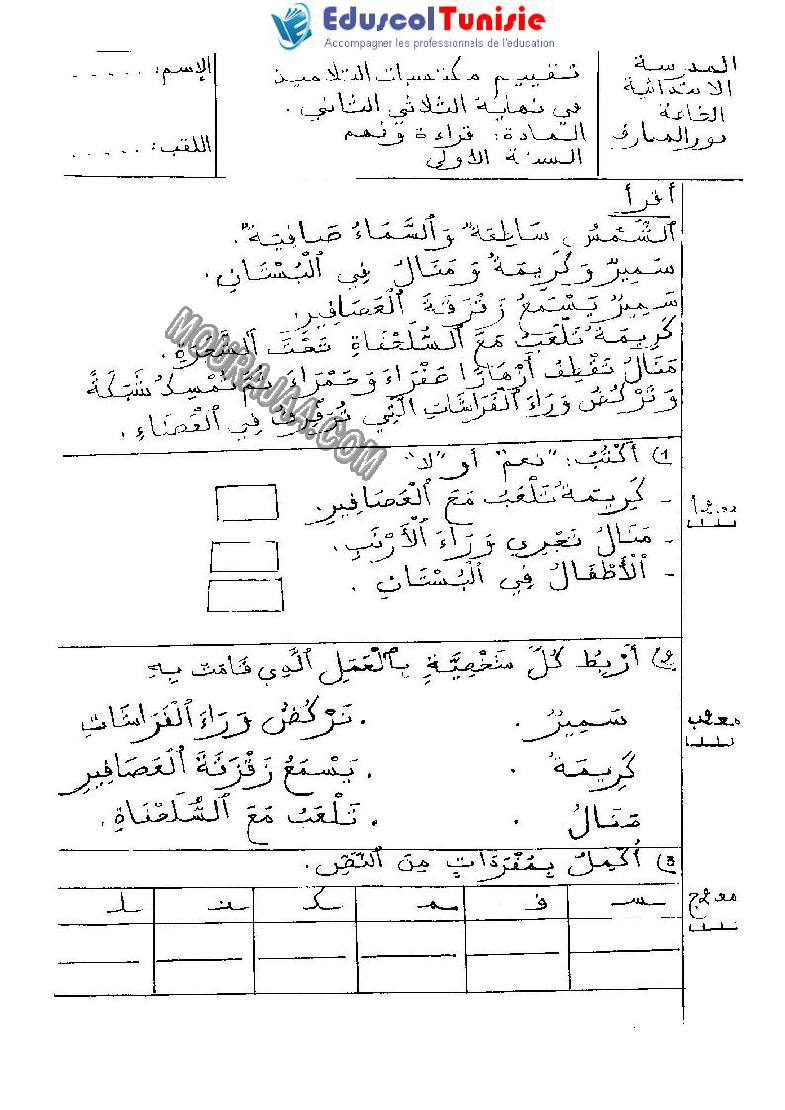 EduscolTunisie
Accompagner les professionnels de l'education
المدرسة
الابتدائية
الخاصة
نور المبارك
تقييم مكتسبات التلاميذ
في نهاية الثلاثي الثاني .
المادة: قراءة وفهم
السنة الأولى
الإسم: .....
اللقب: .....
أقرأ
اَلشَّمْسُ سَاطِعَةٌ وَاَلسَّمَاءُ صَافِيَةٌ.
سَمِيرٌ وَكَرِيمَةُ وَمَنَالُ فِي اَلْبُسْتَانِ.
سَمِيرٌ يَسْمَعُ زَقْزَقَةَ اَلْعَصَافِيرِ.
كَرِيمَةُ تَلْعَبُ مَعَ اَلسُّلَحْفَاةِ تَحْتَ اَلشَّجَرَةِ.
مَنَالُ تَقْطِفُ أَزْهَارًا صَفْرَاءَ وَحَمْرَاءَ ثُمَّ تُمْسِكُ شَبَكَةً
وَتَرْكُضُ وَرَاءَ اَلْفَرَاشَاتِ اَلَّتِي تُرَفْرِفُ فِي اَلْفَضَاءِ.
MOURAJAA.COM
1) أَكْتُبُ: "نعم" أو "لا"
- كَرِيمَةُ تَلْعَبُ مَعَ اَلْعَصَافِيرِ.
- مَنَالُ تَجْرِي وَرَاءَ اَلْأَرْنَبِ.
- اَلْأَطْفَالُ فِي اَلْبُسْتَانِ .
مع2أ
2) أَرْبِطُ كُلَّ شَخْصِيَّةٍ بِاَلْعَمَلِ اَلَّذِي قَامَتْ بِهِ
سَمِيرٌ . . تَرْكُضُ وَرَاءَ اَلْفَرَاشَاتِ
كَرِيمَةُ . . يَسْمَعُ زَقْزَقَةَ اَلْعَصَافِيرِ
مَنَالُ . . تَلْعَبُ مَعَ اَلسُّلَحْفَاةِ.
مع2ب
3) أُكْمِلُ بِمُفْرَدَاتٍ مِنَ اَلنَّصِّ.
مع2ج
سـ فـ مـ كـ نـ لـ